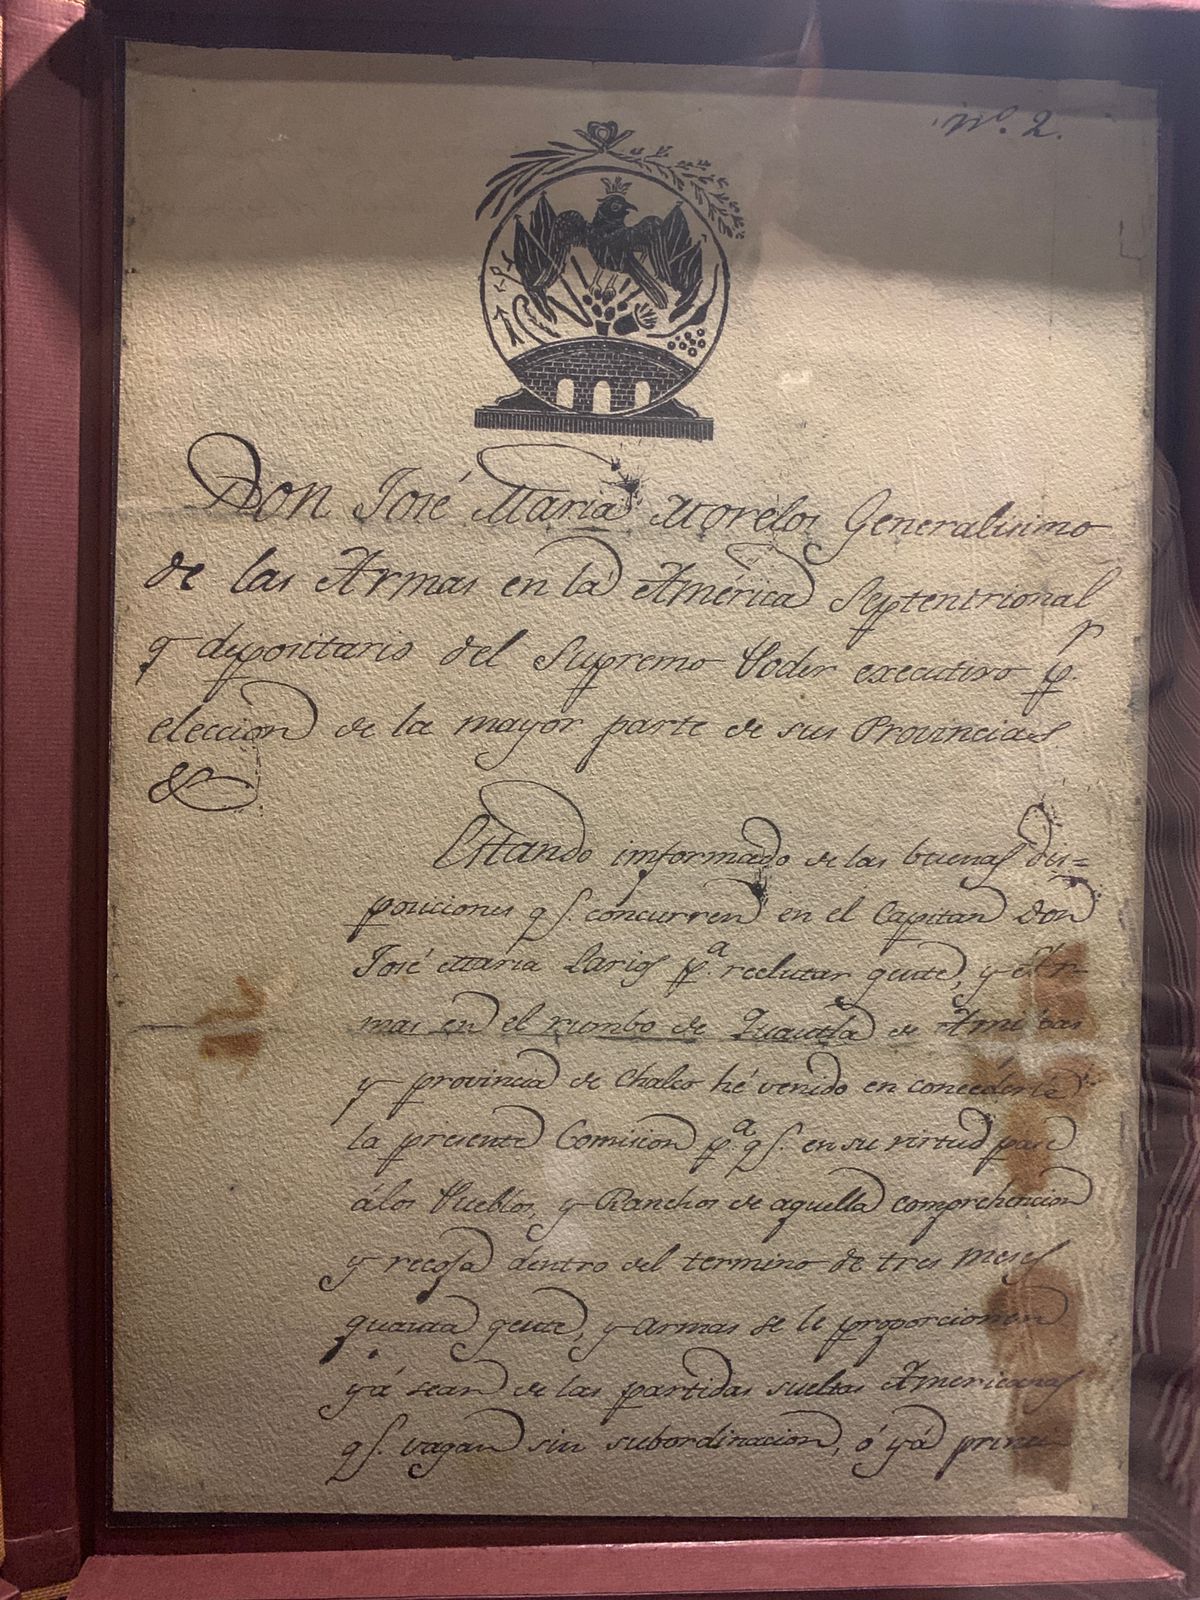 Nº. 2.
Don José María Morelos Generalisimo
de las Armas en la América Septentrional
y depositario del Supremo Poder executivo pr.
eleccion de la mayor parte de sus Provincias
&
Estando imformado de las buenas dis=
posiciones qe. concurren en el Capitan Don
José Maria Larios pa. reclutar gente, y Ar-
mas en el rumbo de Quautla de Amilpas
y provincia de Chalco hé venido en concederle
la presente Comision pa. qe. en su virtud pase
álos Pueblos, y Ranchos de aquella comprehencion
y recoja dentro del termino de tres meses
quanta gente, y armas se le proporcionen
yá sean de las partidas sueltas Americanas
qe. vagan sin subordinacion, ó yá